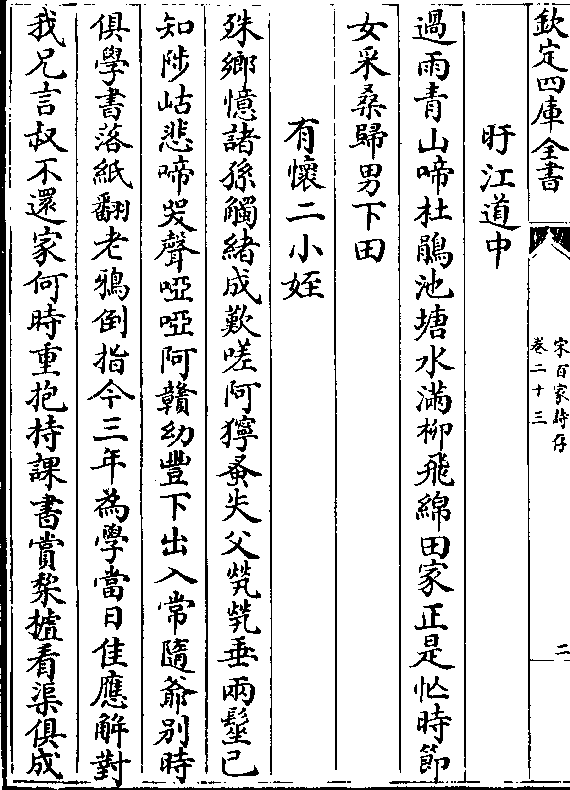 欽定四庫全書
宋百家詩存
卷二十三
二
盱江道中
過雨青山啼杜鵑池塘水滿柳飛綿田家正是忙時節
女采桑歸男下田
有懷二小姪
殊鄉憶諸孫觸緒成歎嗟阿獰蚤失父煢煢垂兩髽已
知陟岵悲啼哭聲啞啞阿贛幼豐下出入常隨爺别時
俱學書落紙翻老鴉倒指今三年為學當日佳應解對
我兄言叔不還家何時重抱持課書賞棃摣看渠俱成